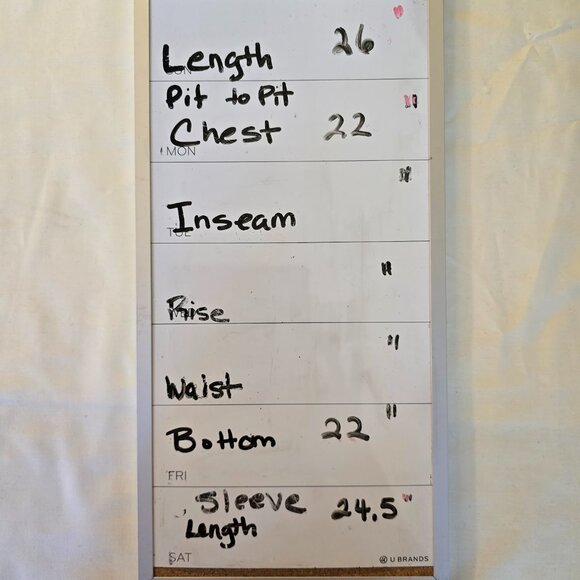 Length 26 "
Pit to Pit "
Chest 22
MON
"
Inseam
"
Rise
"
Waist
"
Bottom 22
FRI
Sleeve 24.5"
Length
SAT U BRANDS